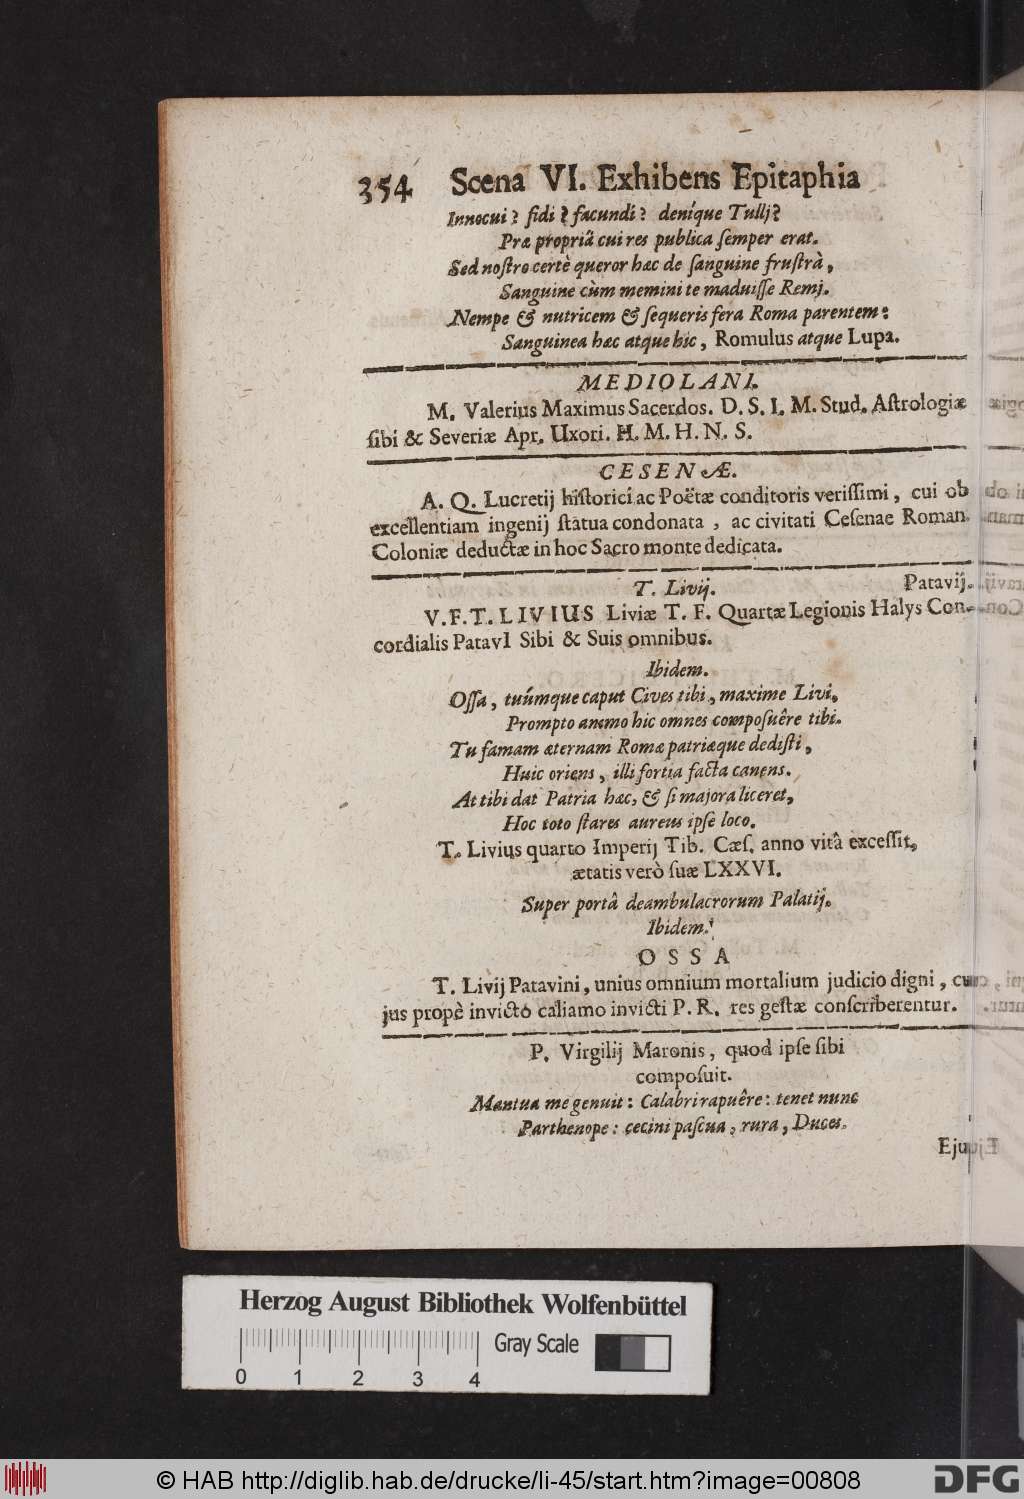 354 Scena VI. Exhibens Epitaphia
Innocui? fidi? facundi? deníque Tullj?
Præ propriâ cui res publica ſemper erat.
Sed noſtro certè queror hæc de ſanguine fruſtrà,
Sanguine cùm memini te maduiſſe Remj.
Nempe & nutricem & ſequeris fera Roma parentem:
Sanguinea hæc atque hic, Romulus atque Lupa.
MEDIOLANI.
M. Valerius Maximus Sacerdos. D. S. I. M. Stud. Aſtrologiæ
ſibi & Severiæ Apr. Uxori. H. M. H. N. S.
CESENÆ.
A. Q. Lucretij hiſtorici ac Poëtæ conditoris veriſſimi, cui ob
excellentiam ingenij ſtatua condonata, ac civitati Ceſenae Roman.
Coloniæ deductæ in hoc Sacro monte dedicata.
T. Livij. Patavij.
V.F.T. LIVIUS Liviæ T. F. Quartæ Legionis Halys Con-
cordialis PatavI Sibi & Suis omnibus.
Ibidem.
Oſſa, tuúmque caput Cives tibi, maxime Livi,
Prompto animo hic omnes compoſuêre tibi.
Tu famam æternam Romæ patriæque dediſti,
Huic oriens, illi fortia facta canens.
At tibi dat Patria hæc, & ſi majora liceret,
Hoc toto ſtares aureus ipſe loco.
T. Livius quarto Imperij Tib. Cæſ. anno vitâ exceſſit,
ætatis verò ſuæ LXXVI.
Super portâ deambulacrorum Palatij.
Ibidem.
OSSA
T. Livij Patavini, unius omnium mortalium judicio digni, cu-
jus propè invicto caliamo invicti P. R. res geſtæ conſcriberentur.
P. Virgilij Maronis, quod ipſe ſibi
compoſuit.
Mantua me genuit: Calabri rapuêre: tenet nunc
Parthenope: cecini paſcua, rura, Duces.
Herzog August Bibliothek Wolfenbüttel
Gray Scale
0 1 2 3 4
© HAB http://diglib.hab.de/drucke/li-45/start.htm?image=00808
DFG